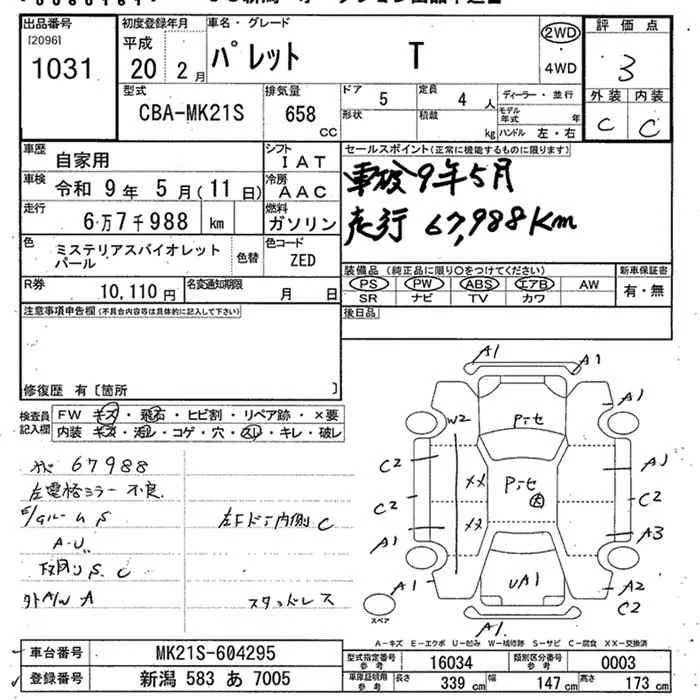 出品番号
[2096]
1031
初度登録年月
平成
20年 2月
車名・グレード
パレット T
2WD
4WD
評価点
3
外装 内装
C C
型式
CBA-MK21S
排気量
658 cc
ドア 5
定員 4人
形状
積載 kg
ディーラー・並行
モデル年式 年
ハンドル 左・右
車歴
自家用
シフト
IAT
車検
令和 9年 5月(11日)
冷房
AAC
走行
6万7千988 km
燃料
ガソリン
色
ミステリアスバイオレット
パール
色替
色コード
ZED
R券
10,110円
名変通知期限
月 日
セールスポイント(正常に機能するものに限ります)
車検9年5月
走行 67,988Km
装備品(純正品に限り○をつけてください)
PS PW ABS エアB AW
SR ナビ TV カワ
新車保証書
有・無
後日品
注意事項申告欄(不具合内容等は具体的に記入して下さい)
修復歴 有〔箇所 〕
検査員
記入欄
FW キズ・飛石・ヒビ割・リペア跡・×要
内装 キズ・汚レ・コゲ・穴・スレ・キレ・破レ
67988
左電格ミラー不良
S
A-U
下回りS、C
外AW A
左Fドア内側C
スタッドレス
A1 A1
A1
W2
ルーフ
C2
A1
XX
C2
C2
XX
A1
A3
A1
UA1
A2
C2
A1
スペア
A－キズ E－エクボ U－凹み W－補修跡 S－サビ C－腐食 XX－交換済
車台番号
MK21S-604295
登録番号
新潟 583 あ 7005
型式指定番号
参考
16034
類別区分番号
参考
0003
車庫証明用
参考
長さ 339 cm
幅 147 cm
高さ 173 cm